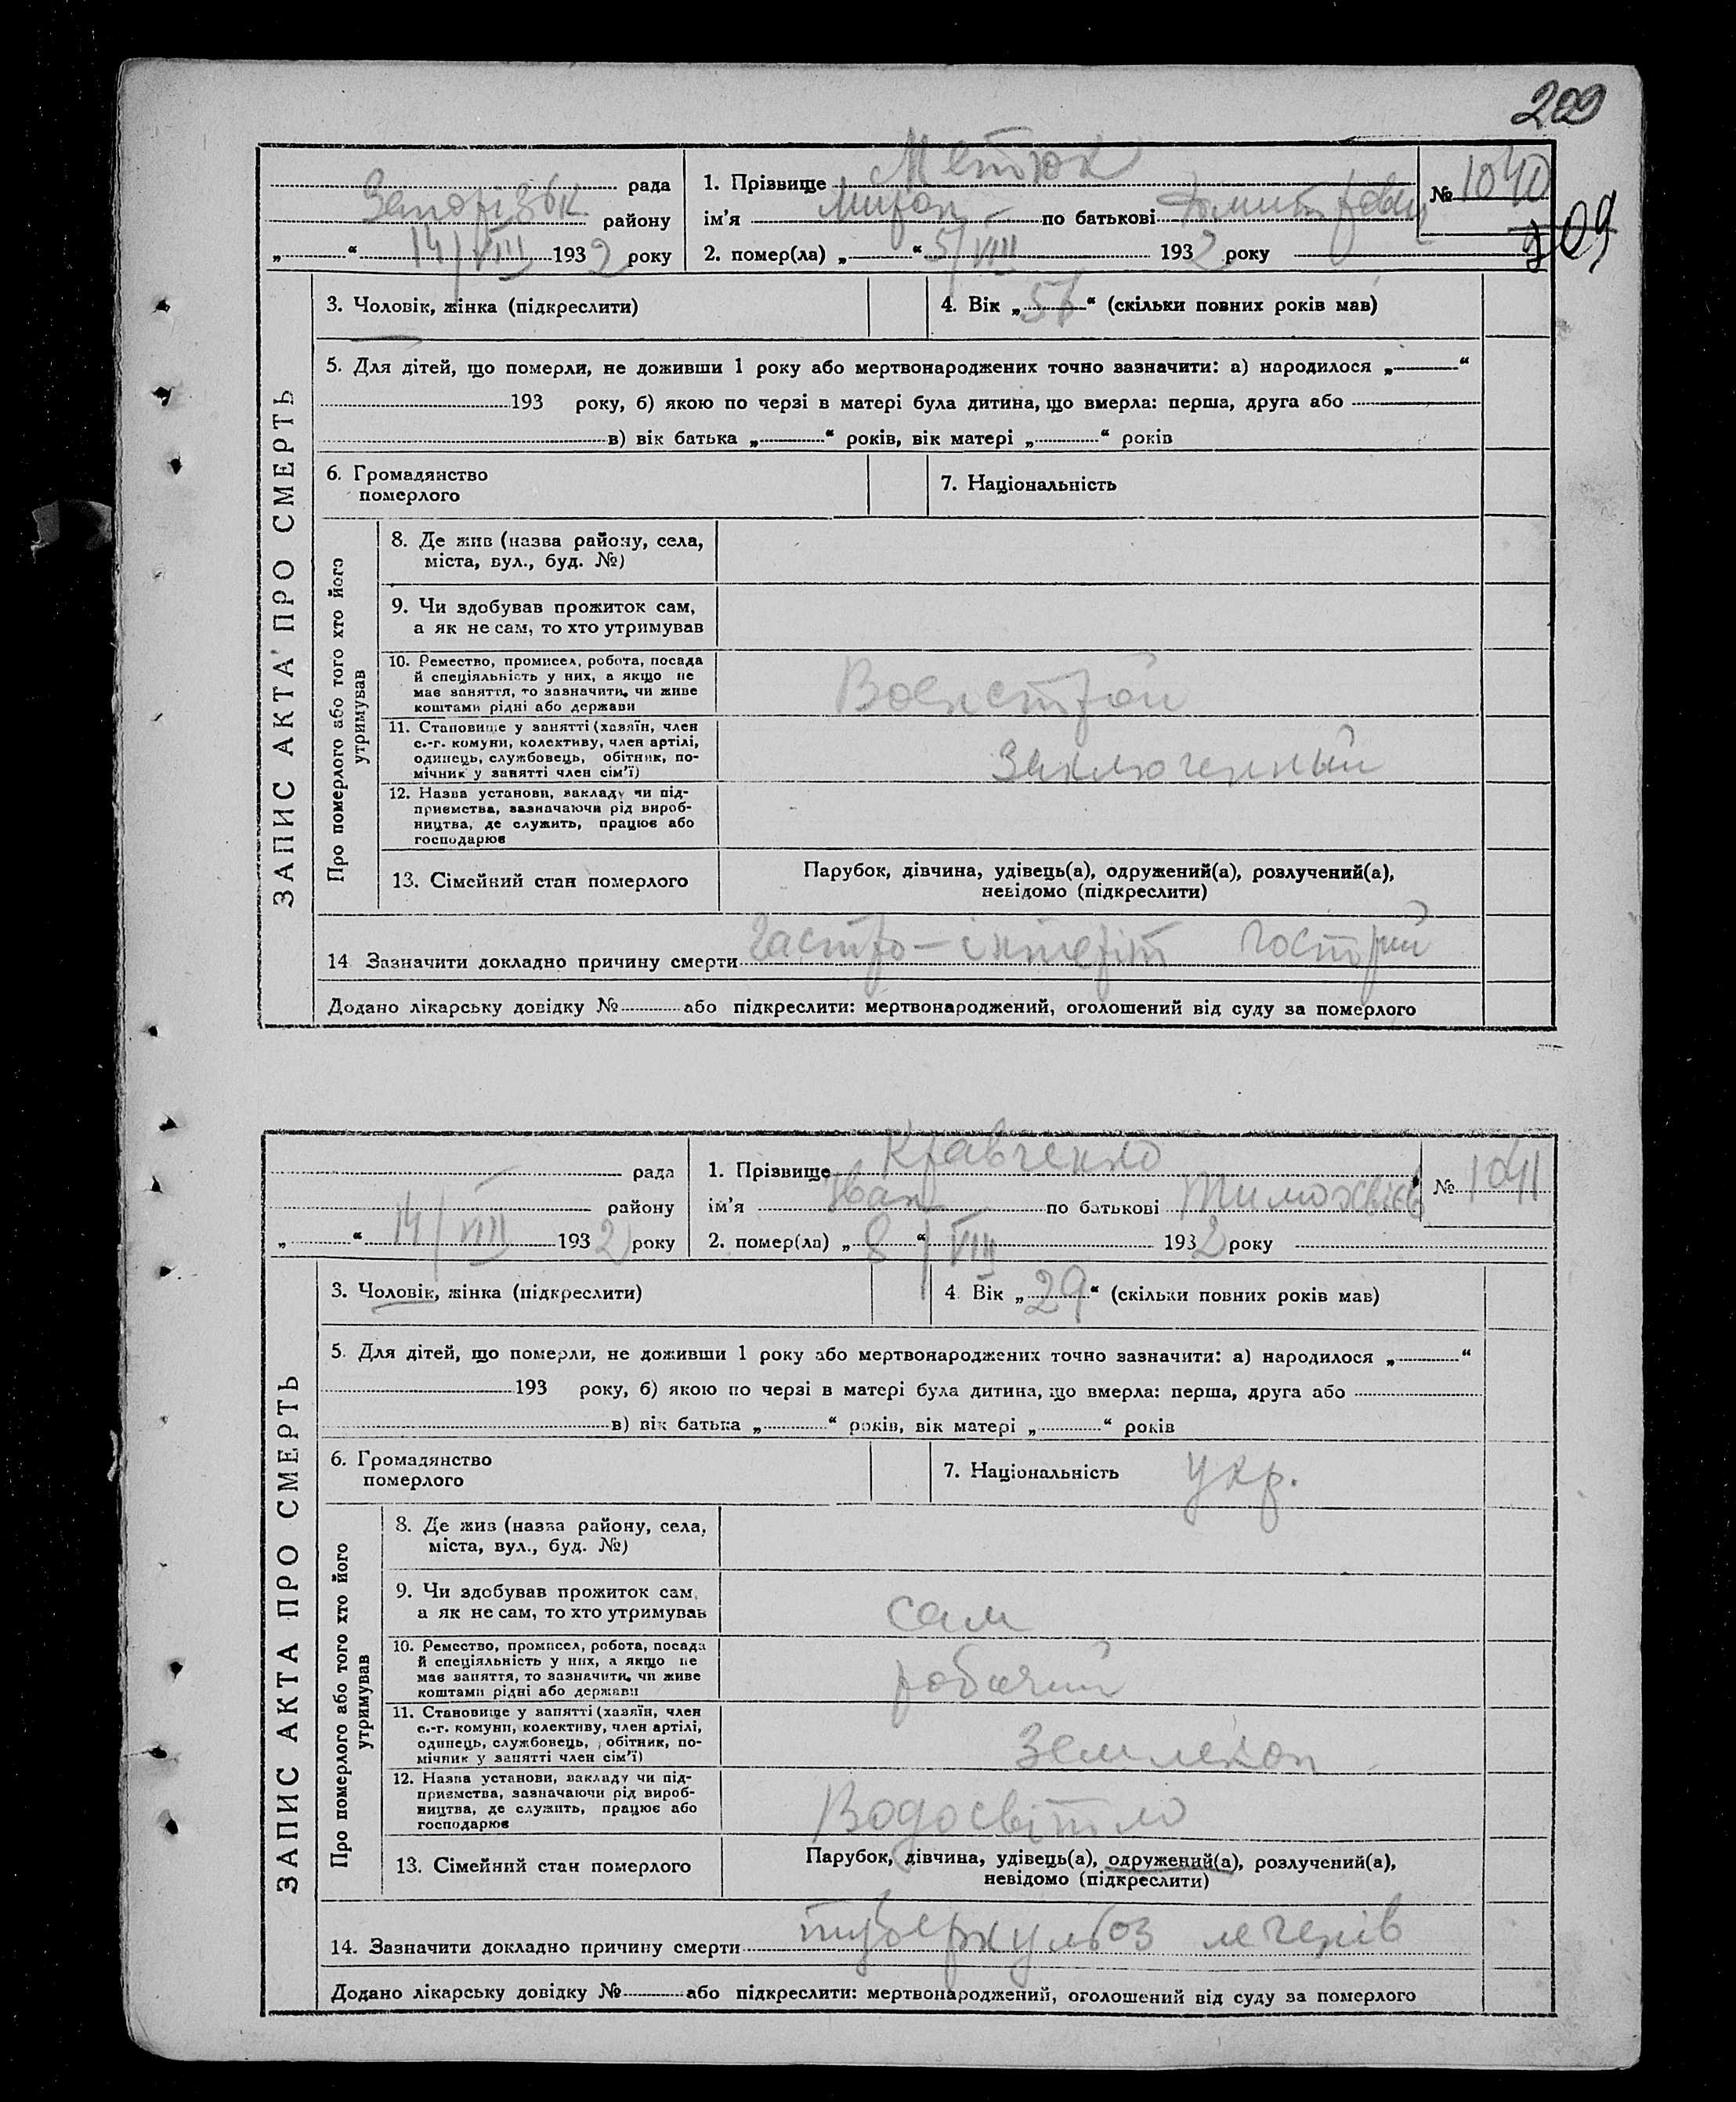 209
Метюк
рада 1. Прізвище № 1040
Запорізьк району ім'я Мирон по батькові Дмитрович
109
„ “ 14/VIII 1932 року 2. помер(ла) „ “ 5/VIII 1932 року
ЗАПИС АКТА ПРО СМЕРТЬ
3. Чоловік, жінка (підкреслити) 4. Вік „ “ (скільки повних років мав)
5. Для дітей, що померли, не доживши 1 року або мертвонароджених точно зазначити: а) народилося „ “
193 року, б) якою по черзі в матері була дитина, що вмерла: перша, друга або
в) вік батька „ “ років, вік матері „ “ років
6. Громадянство
померлого
7. Національність
Про померлого або того хто його
утримував
8. Де жив (назва району, села,
міста, вул., буд. №)
9. Чи здобував прожиток сам,
а як не сам, то хто утримував
10. Ремество, промисел, робота, посада
й спеціяльність у них, а якщо не
має заняття, то зазначити, чи живе
коштами рідні або держави
Военстрой
11. Становище у занятті (хазяїн, член
с.-г. комуни, колективу, член артілі,
одинець, службовець, обітник, по-
мічник у занятті член сім'ї)
Заключенный
12. Назва установи, закладу чи під-
приємства, зазначаючи рід вироб-
ництва, де служить, працює або
господарює
13. Сімейний стан померлого
Парубок, дівчина, удівець(а), одружений(а), розлучений(а),
невідомо (підкреслити)
14 Зазначити докладно причину смерти гастро-інтеріт гострий
Додано лікарську довідку № або підкреслити: мертвонароджений, оголошений від суду за померлого
Кравченко
рада 1. Прізвище № 1041
району ім'я Іван по батькові Тимохвієв
„ “ 14/VIII 1932 року 2. помер(ла) „ 8 “ /VIII 1932 року
ЗАПИС АКТА ПРО СМЕРТЬ
3. Чоловік, жінка (підкреслити) 4. Вік „ 29 “ (скільки повних років мав)
5. Для дітей, що померли, не доживши 1 року або мертвонароджених точно зазначити: а) народилося „ “
193 року, б) якою по черзі в матері була дитина, що вмерла: перша, друга або
в) вік батька „ “ років, вік матері „ “ років
6. Громадянство
померлого
7. Національність укр.
Про померлого або того хто його
утримував
8. Де жив (назва району, села,
міста, вул., буд. №)
9. Чи здобував прожиток сам,
а як не сам, то хто утримував
сам
10. Ремество, промисел, робота, посада
й спеціяльність у них, а якщо не
має заняття, то зазначити, чи живе
коштами рідні або держави
робочий
11. Становище у занятті (хазяїн, член
с.-г. комуни, колективу, член артілі,
одинець, службовець, обітник, по-
мічник у занятті член сім'ї)
Землекоп
12. Назва установи, закладу чи під-
приємства, зазначаючи рід вироб-
ництва, де служить, працює або
господарює
Водосвітло
13. Сімейний стан померлого
Парубок, дівчина, удівець(а), одружений(а), розлучений(а),
невідомо (підкреслити)
14. Зазначити докладно причину смерти туберкульоз легенів
Додано лікарську довідку № або підкреслити: мертвонароджений, оголошений від суду за померлого